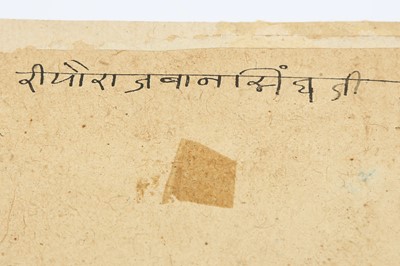 रीयौराजबानसिंघजी